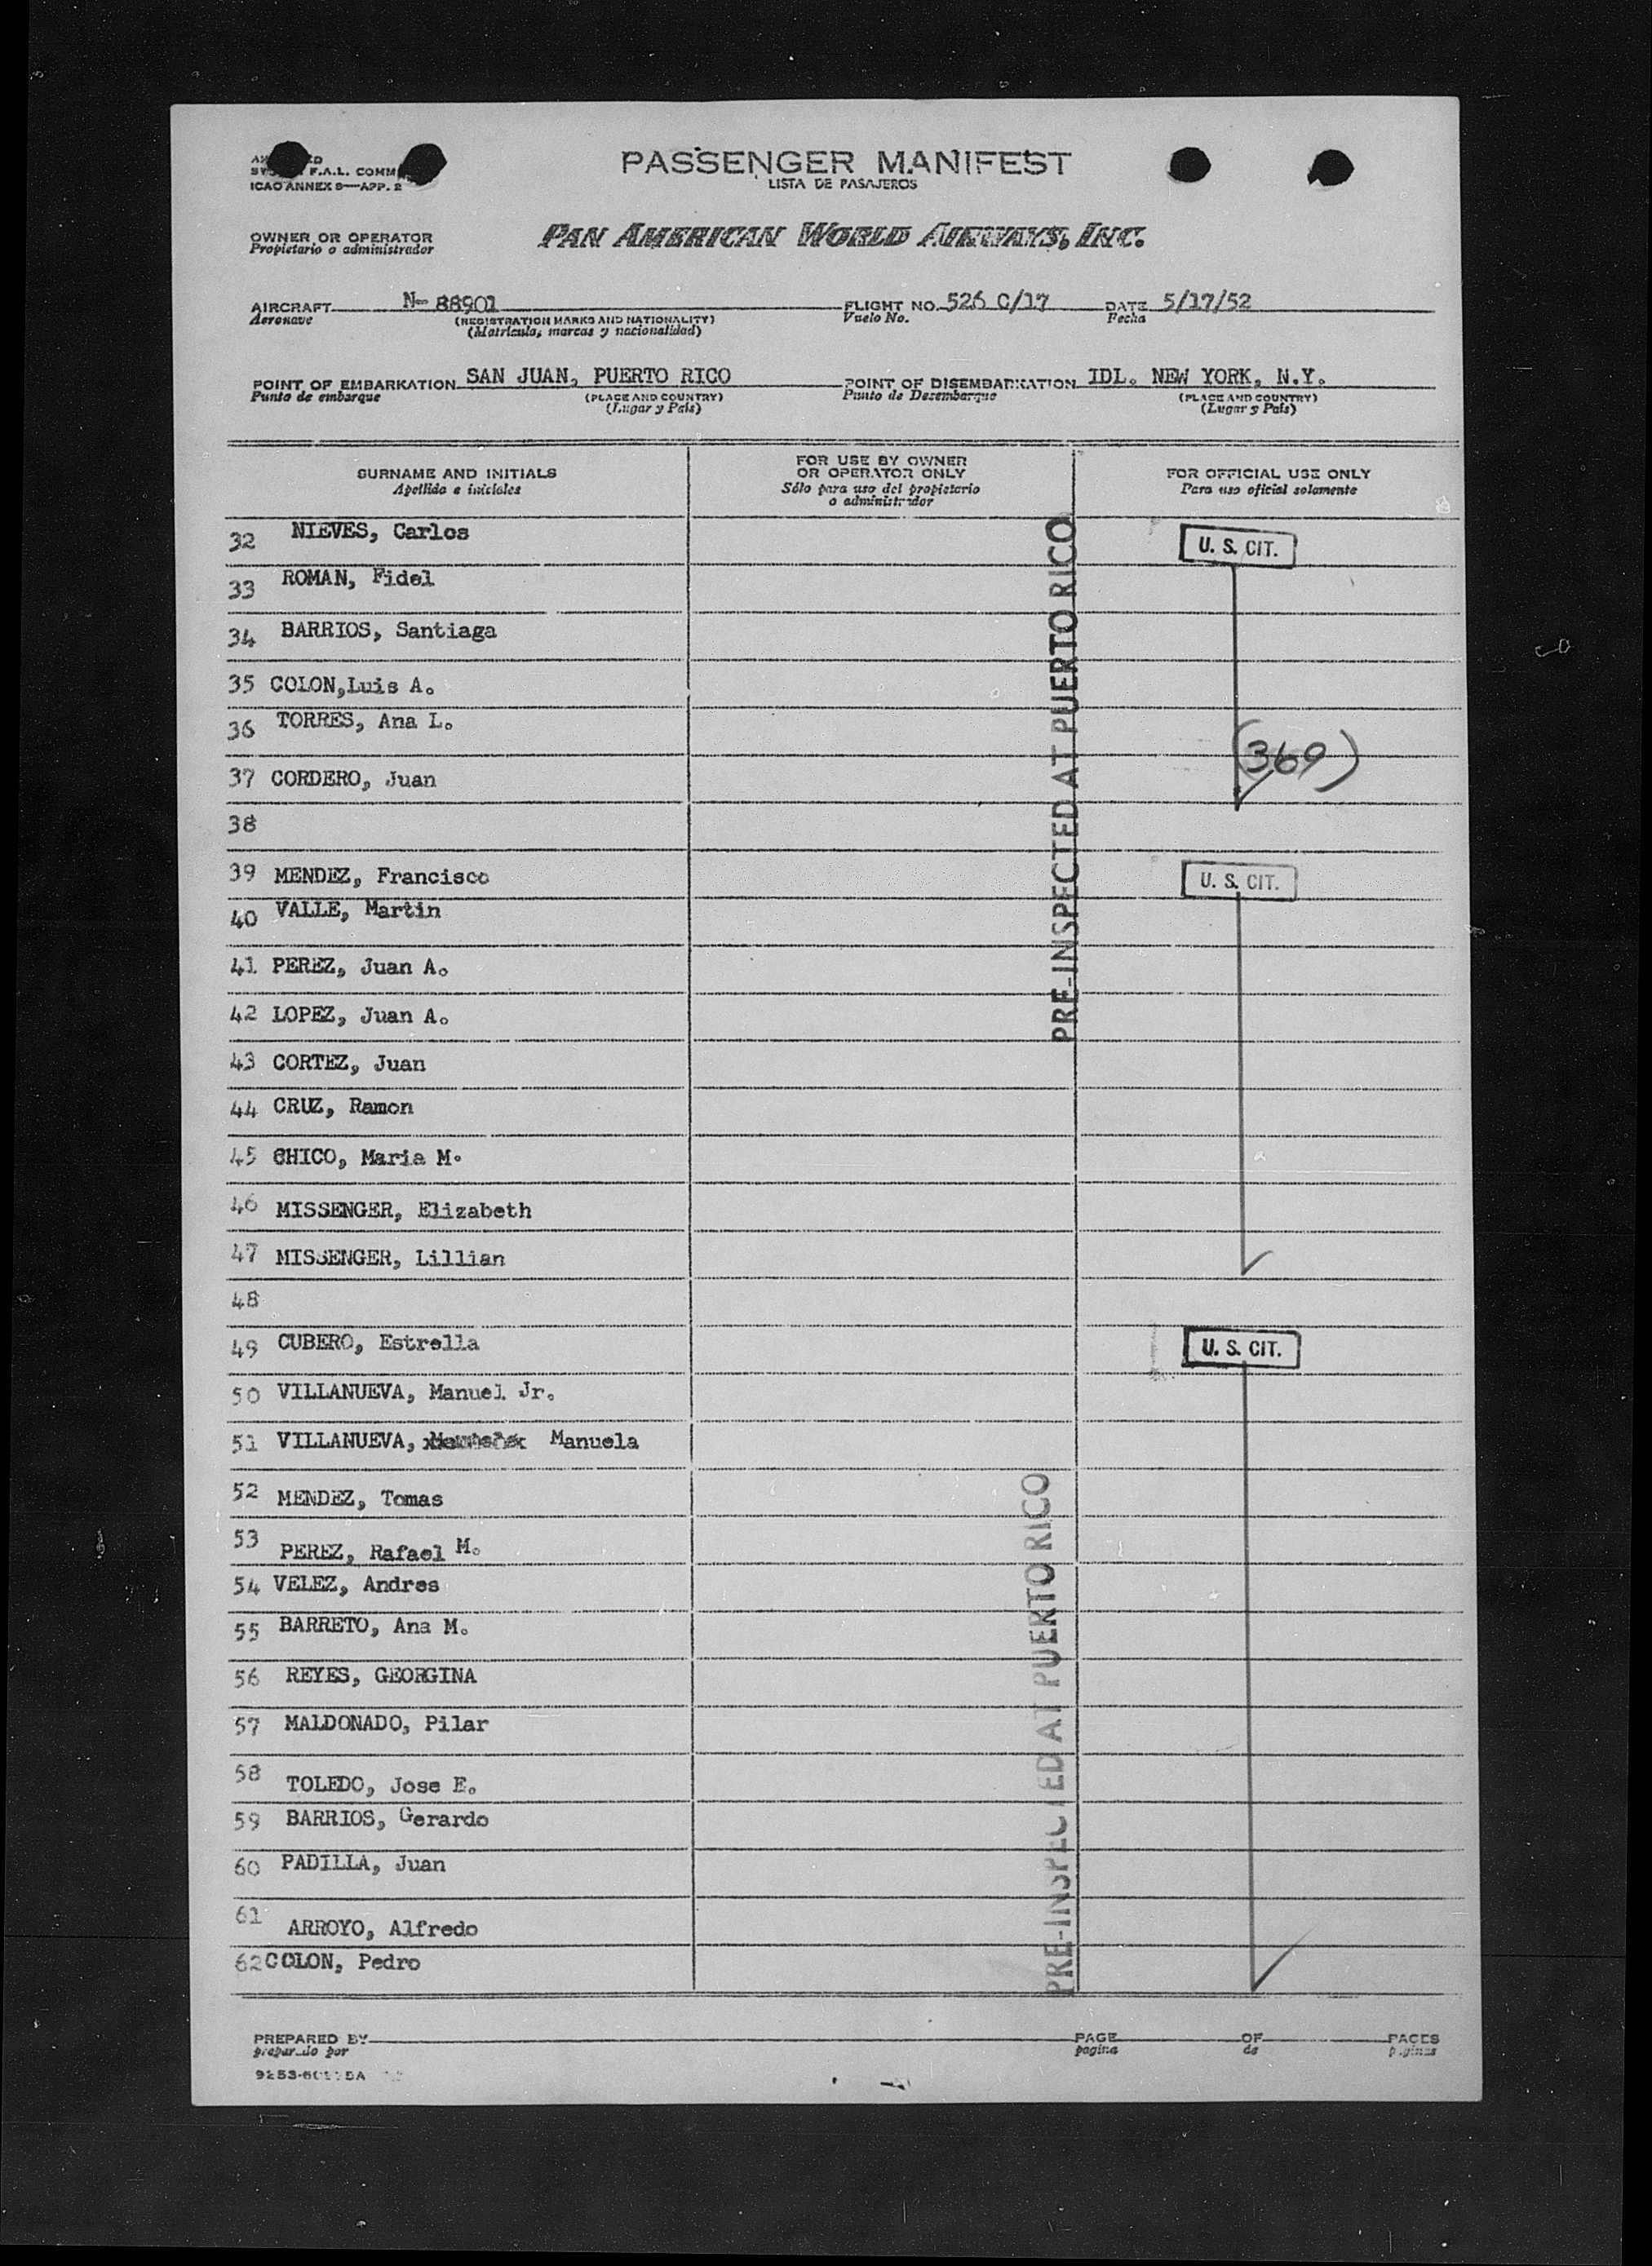 PASSENGER MANIFEST
LISTA DE PASAJEROS
F.A.L. COMM
ICAO ANNEX 9—APP. 2
OWNER OR OPERATOR
Propietario o administrador
PAN AMERICAN WORLD AIRWAYS, INC.
AIRCRAFT N- 88901 FLIGHT NO. 526 C/17 DATE 5/17/52
Aeronave (REGISTRATION MARKS AND NATIONALITY) Vuelo No. Fecha
(Matrícula, marcas y nacionalidad)
POINT OF EMBARKATION SAN JUAN, PUERTO RICO POINT OF DISEMBARKATION IDL. NEW YORK, N.Y.
Punto de embarque (PLACE AND COUNTRY) Punto de Desembarque (PLACE AND COUNTRY)
(Lugar y País) (Lugar y País)
SURNAME AND INITIALS FOR USE BY OWNER OR OPERATOR ONLY FOR OFFICIAL USE ONLY
Apellido e iniciales Sólo para uso del propietario o administrador Para uso oficial solamente
32 NIEVES, Carlos U. S. CIT.
33 ROMAN, Fidel
34 BARRIOS, Santiaga
35 COLON,Luis A.
36 TORRES, Ana L.
(369)
37 CORDERO, Juan
38
39 MENDEZ, Francisco U. S. CIT.
40 VALLE, Martin
41 PEREZ, Juan A.
42 LOPEZ, Juan A.
43 CORTEZ, Juan
44 CRUZ, Ramon
45 CHICO, Maria M.
46 MISSENGER, Elizabeth
47 MISSENGER, Lillian
48
49 CUBERO, Estrella U. S. CIT.
50 VILLANUEVA, Manuel Jr.
51 VILLANUEVA, Manuela
52 MENDEZ, Tomas
53 PEREZ, Rafael M.
54 VELEZ, Andres
55 BARRETO, Ana M.
56 REYES, GEORGINA
57 MALDONADO, Pilar
58 TOLEDO, Jose E.
59 BARRIOS, Gerardo
60 PADILLA, Juan
61 ARROYO, Alfredo
62 COLON, Pedro
PRE-INSPECTED AT PUERTO RICO
PRE-INSPECTED AT PUERTO RICO
PREPARED BY PAGE OF PAGES
preparado por pagina de paginas